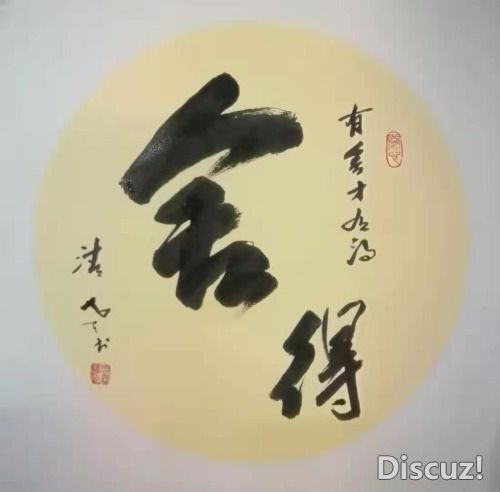 舍得
有舍才有得
清
书
Discuz!